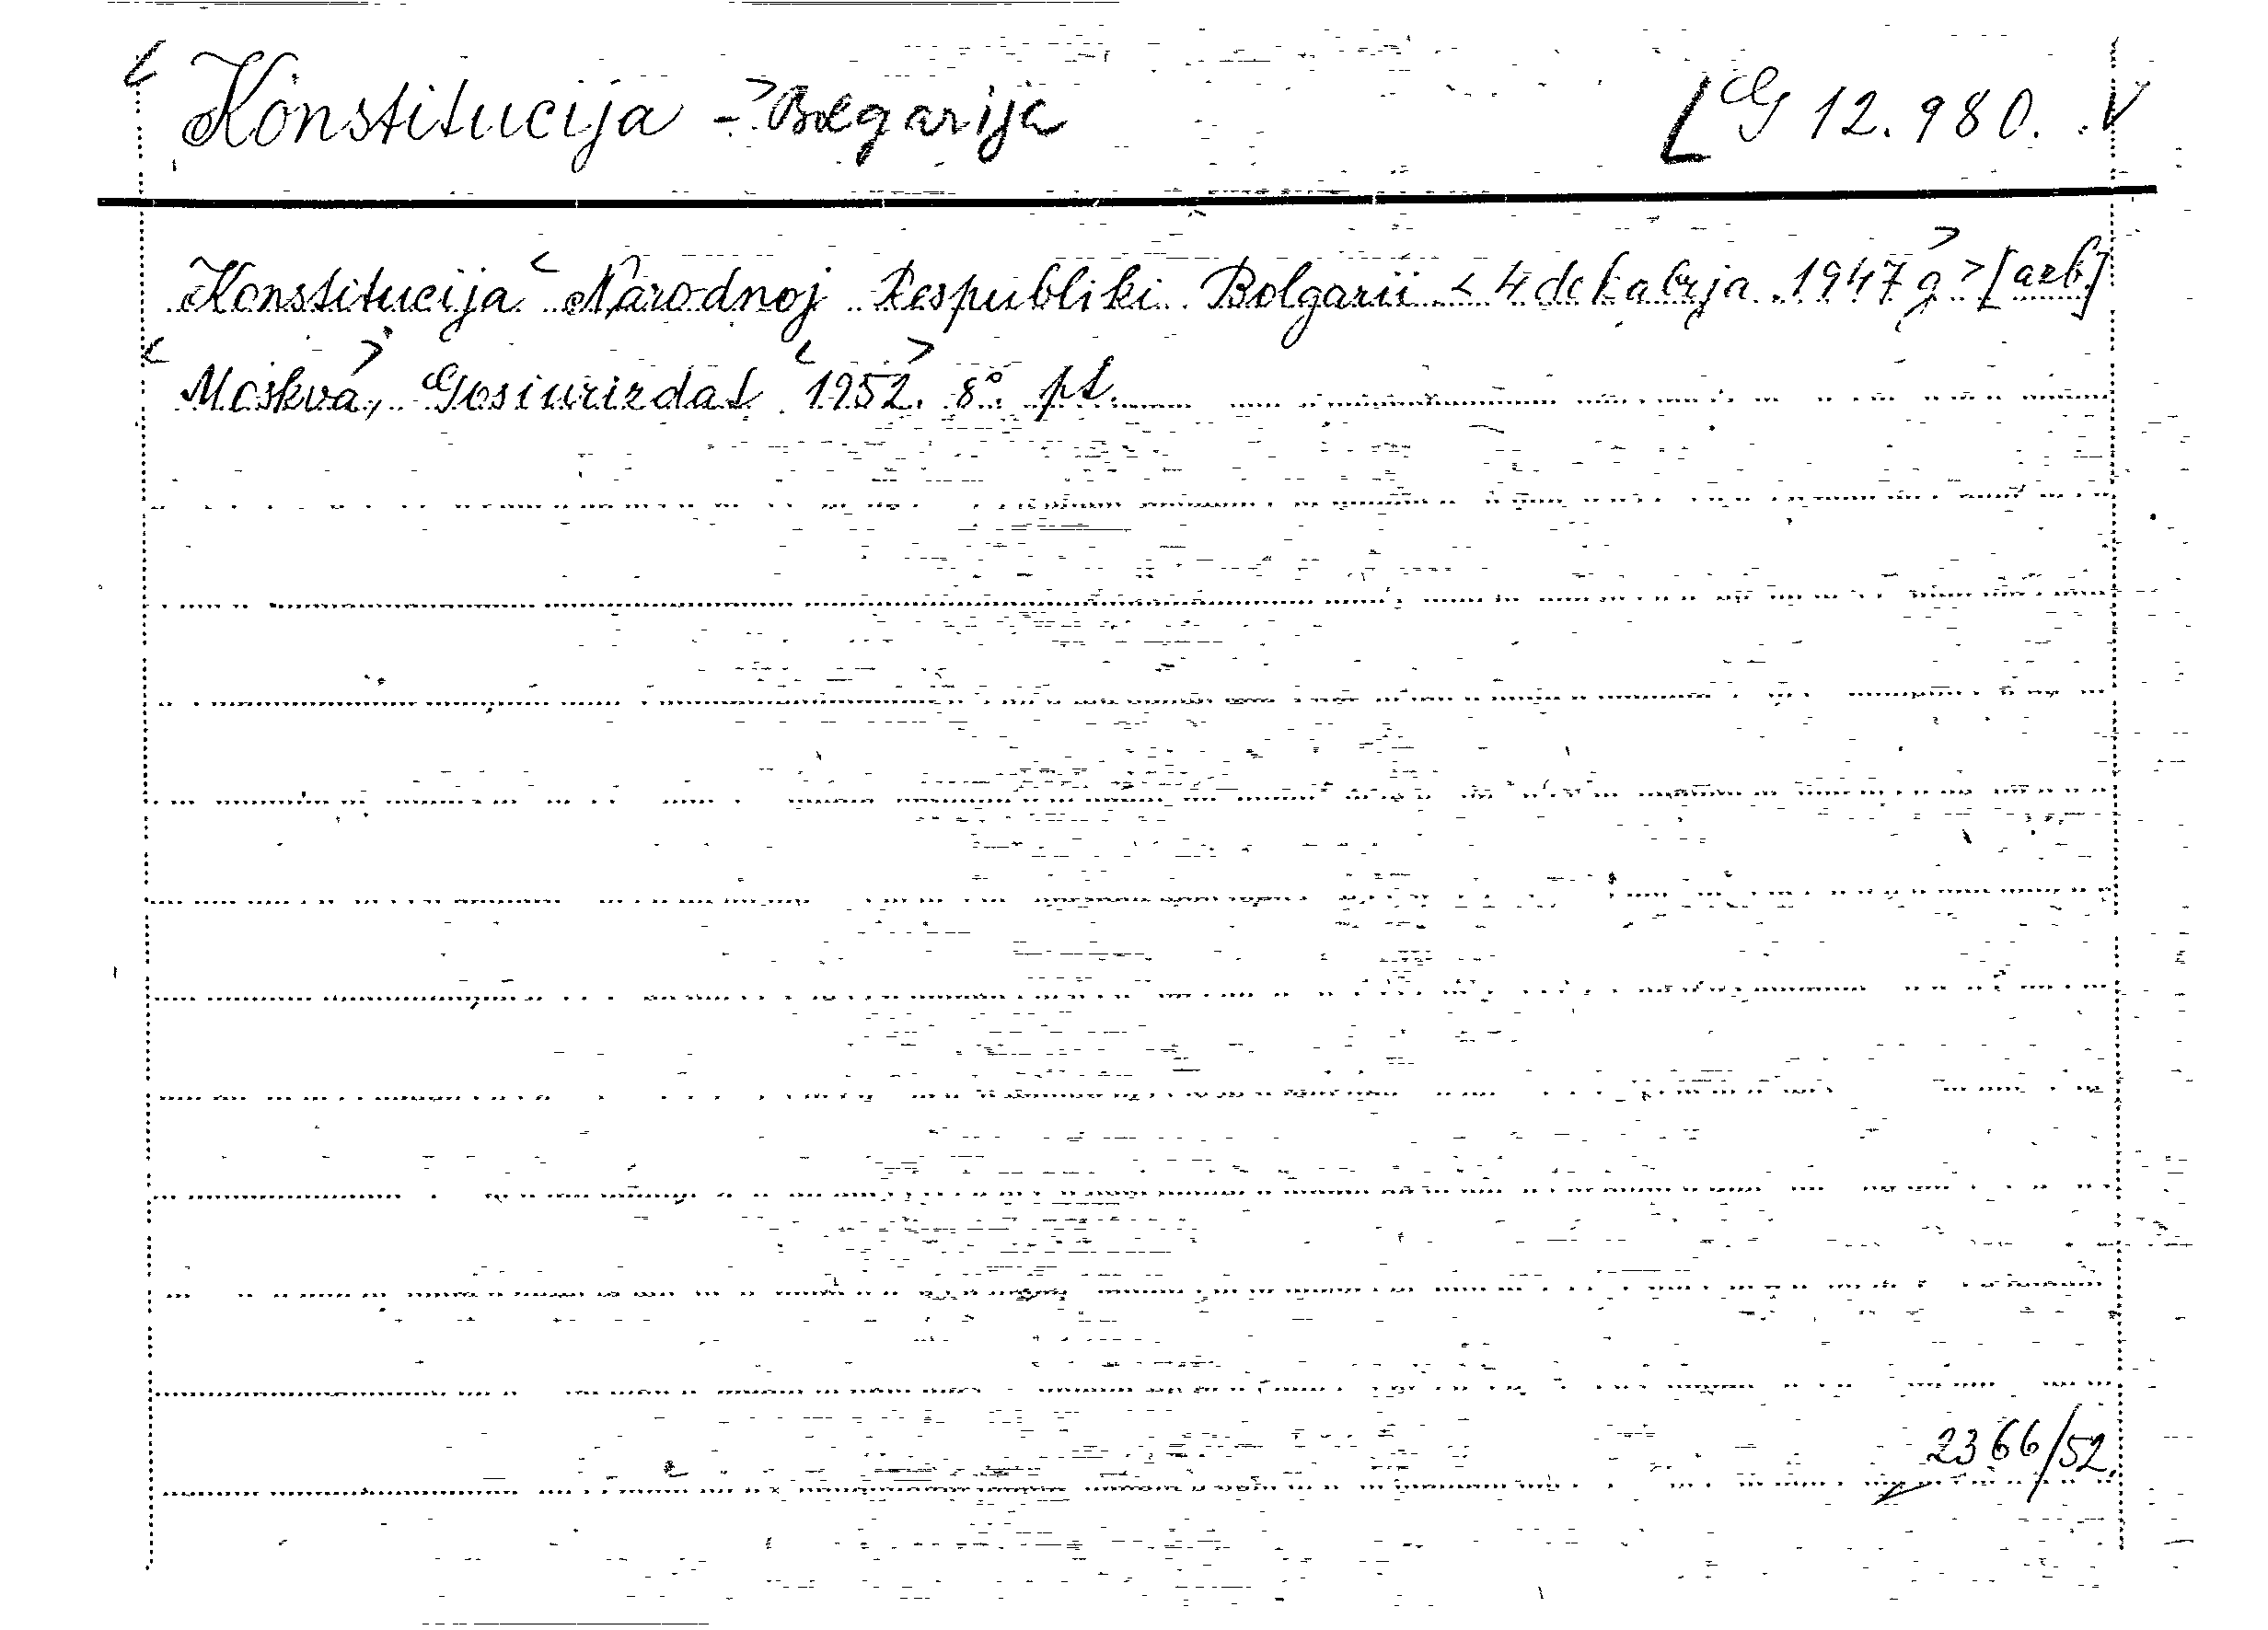 Konstitucija - Bolgarija [G 12.980. V
Konstitucija Narodnoj Respubliki Bolgarii < 4 dekabrja 1947 g > [azb.]
Moskva, Gosiurizdat 1952. 8° pt.
2366/52.